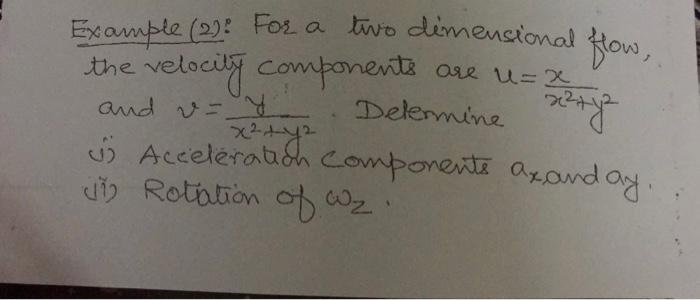 Example (2): For a two dimensional flow,
the velocity components are u = x/(x²+y²)
and v = y/(x²+y²). Determine
i) Acceleration components ax and ay.
ii) Rotation of ωz.